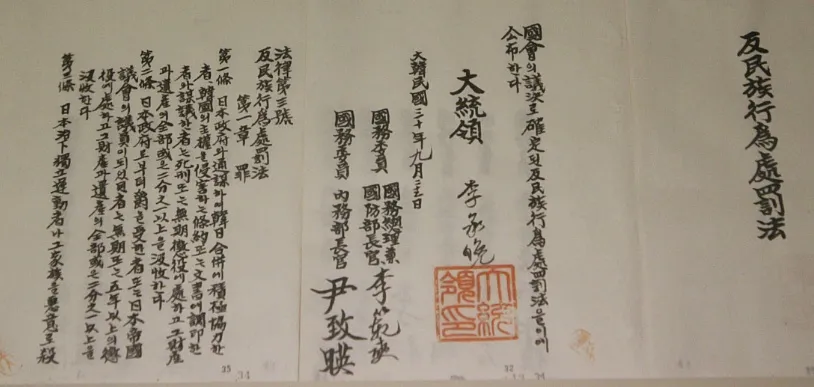 反民族行為處罰法
國會의議決로確定된反民族行為處罰法을이에
公布한다
大統領 李承晩
大統領印
大韓民國三十年九月二十二日
國務委員 國務總理兼
國防部長官 李範奭
國務委員 內務部長官 尹致暎
法律第三號
反民族行為處罰法
第一章 罪
第一條 日本政府와通謀하여韓日合併에積極協力한
者、韓國의主權을侵害하는條約又는文書에調印한
者와謀議한者는死刑又는無期懲役에處하고그財産
과遺産의全部或은二分之一以上을沒收한다
第二條 日本政府로부터爵을受한者又는日本帝國
議會의議員이되었던者는無期又는五年以上의懲
役에處하고그財産과遺産의全部或은二分之一以上을
沒收한다
第三條 日本治下獨立運動者나그家族을惡意로殺
35
34
32